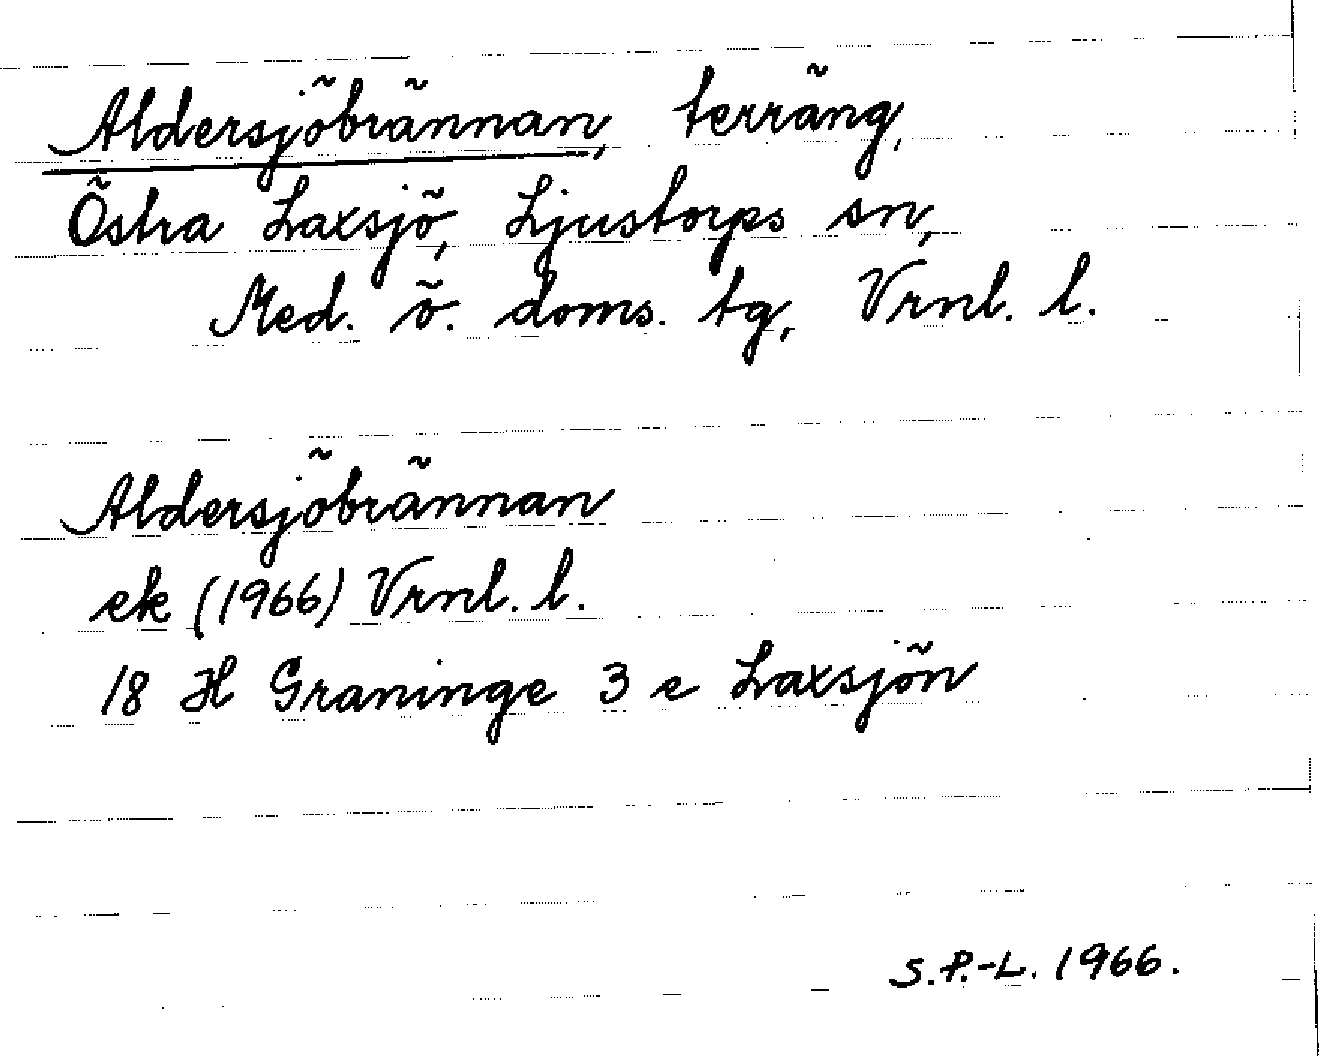 Aldersjöbrännan, terräng,
Östra Laxsjö, Ljustorps sn,
Med. ö. doms. tg, Vrnl. l.
Aldersjöbrännan
ek (1966) Vrnl. l.
18 H Graninge 3 e Laxsjön
S.P.-L. 1966.